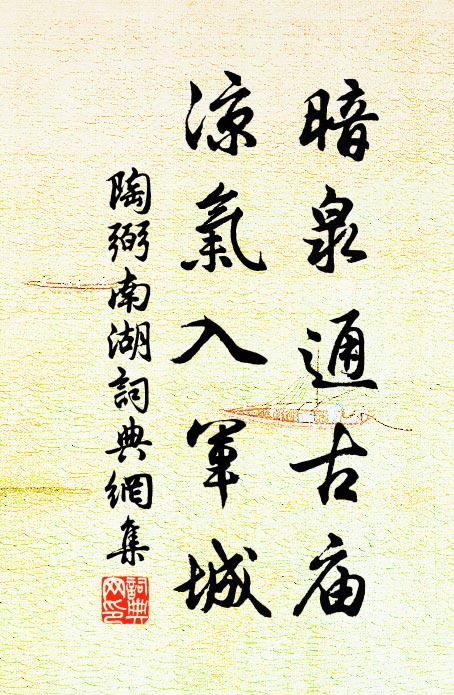 暗泉通古庙
凉氣入軍城
陶弼南湖詞典網集
詞典网印